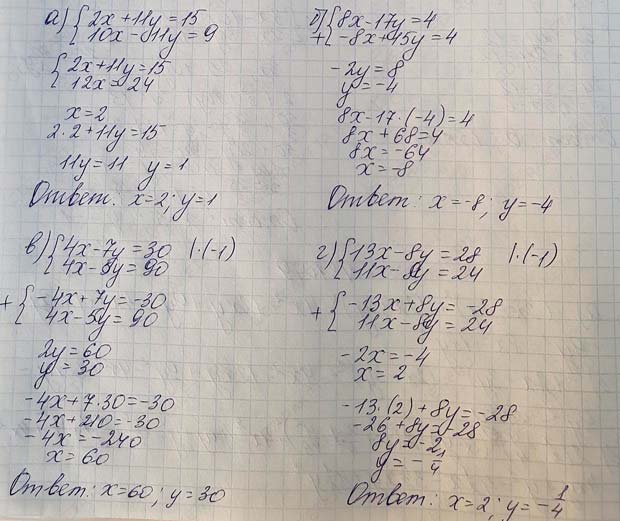 а) { 2x + 11y = 15
10x - 11y = 9
{ 2x + 11y = 15
12x = 24
x = 2
2·2 + 11y = 15
11y = 11 y = 1
Ответ: x = 2; y = 1
б) { 8x - 17y = 4
+ -8x + 15y = 4
-2y = 8
y = -4
8x - 17·(-4) = 4
8x + 68 = 4
8x = -64
x = -8
Ответ: x = -8; y = -4
в) { 4x - 7y = 30 |·(-1)
4x - 5y = 90
+ { -4x + 7y = -30
4x - 5y = 90
2y = 60
y = 30
-4x + 7·30 = -30
-4x + 210 = -30
-4x = -240
x = 60
Ответ: x = 60; y = 30
г) { 13x - 8y = 28 |·(-1)
11x - 8y = 24
+ { -13x + 8y = -28
11x - 8y = 24
-2x = -4
x = 2
-13·(2) + 8y = -28
-26 + 8y = -28
8y = -2
y = -1/4
Ответ: x = 2; y = -1/4